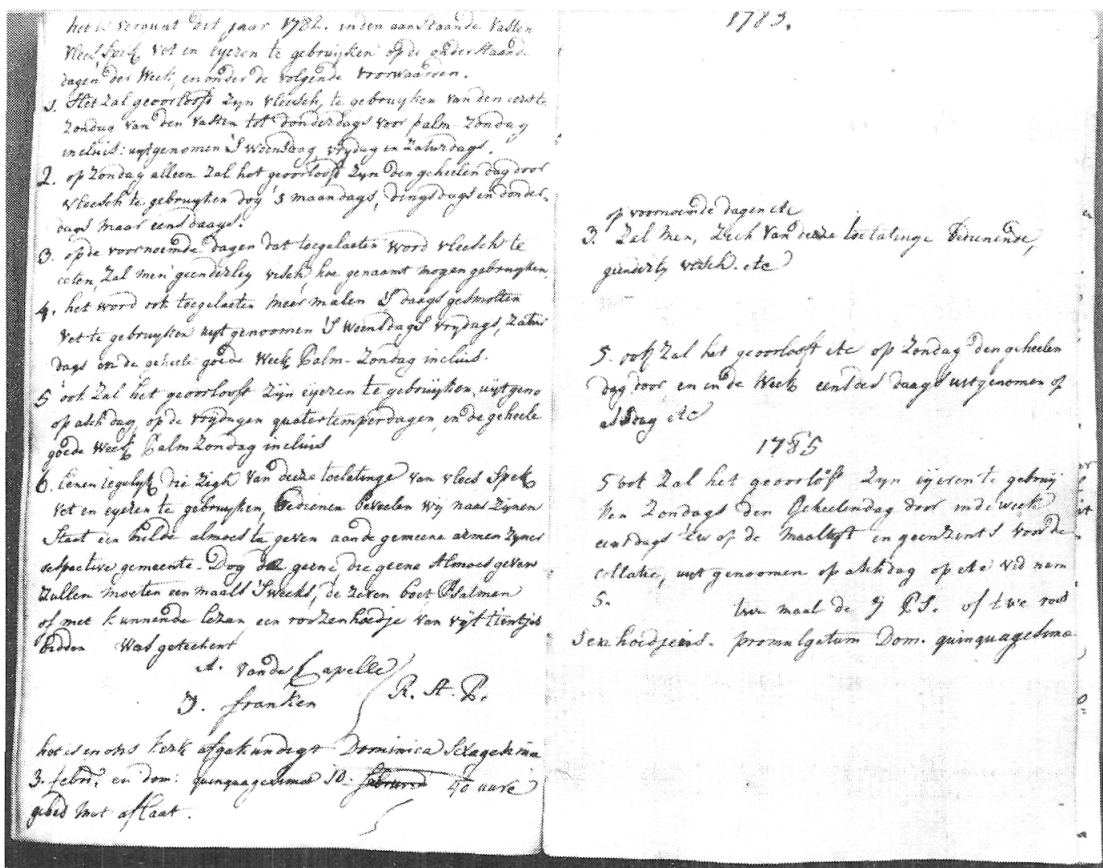 het is vergunt dit jaar 1782. inden aanstaande vasten
vlees, spek vet en eyeren te gebruyken op de onderstaand
dagen der Week, en onder de volgende voorwaarden.
1. Het zal geoorlooft zyn vleesch, te gebruyken van den eerste
Zondag van den vasten tot donderdags voor palm-Zondag
incluis: uijtgenomen 'S Weensdag vrydag en Zaturdags.
2. op Zondag alleen zal het geoorlooft zyn den geheelen dag door
vleesch te gebruyken dog 's maandags, dingsdags en donder-
dags maar eens daags.
3. op de voornoemde dagen dat toegelaeten word vleesch te
eeten, zal men geenderley visch, hoe genaamt mogen gebruyken,
4. het word ook toegelaeten meermalen 'S daags gesmolten
vet te gebruyken uijt genoomen 'S Weensdags vrydags, Zatur
dags en de geheele goede Week Palm-Zondag incluis.
5 ook Zal het geoorlooft Zijn eyeren te gebruyken, uijtgeno
op asch dag, op de vrydagen quatertemperdagen, en de geheele
goede Week Palm Zondag incluis
6. Eenen iegelyk die zigh van deeze toelatinge van vlees Spek
vet en eyeren te gebruyken, bedienen beveelen wij naar zijnen
Staet een milde almoes te geven aan de gemeene armen zyner
respective gemeente. Dog die geene die geene Almoes geven
Zullen moeten eenmaals 'S weeks, de zeven boet Psalmen
of niet kunnende lezen een roozenhoedje van vijf tientjes
bidden Was getekent
A. van de Capelle
J. franken R. A. P.
het is in ons kerk afgekundigt Dominica Sexagesima
3. febri. en dom: quinquagesima 10. februarii 40 uure
gebed met aflaat.
1783.
op voornoemde dagen etc
3. Zal men, Zich van deeze toelatinge bedienende,
geenderly visch. etc
5. ook Zal het geoorlooft etc op Zondag den geheelen
dag door en in de Week eens des daags uitgenomen op
asdag etc
1785
5 oot Zal het georlooft Zyn eyeren te gebruij
ken Zondags den geheelen dag door inde week
eens dags op de Maaltyt en geenzints voor de
collatie, uut genoomen op askdag op etc vid num
5. twe maal de 7 PS. of twe roos
senhoedjens. promulgatum Dom. quinquagesima